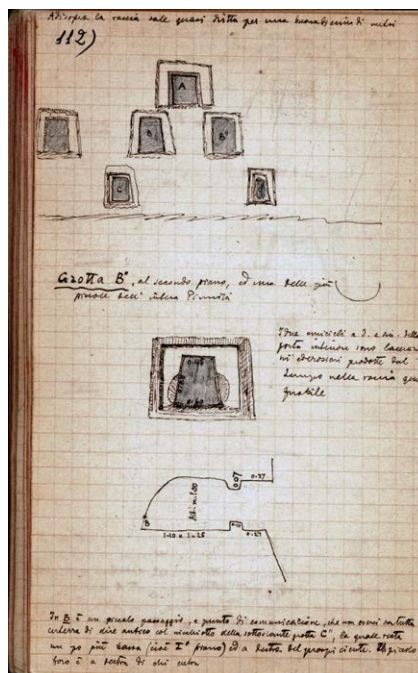 Al disopra la roccia sale quasi dritta per una buona decina di metri
112)
A
B
B'
C
Grotta B°, al secondo piano, ed una delle più
piccole dell' intera
I due semicircoli a d. e sin. della
porta interiore sono
ed erosioni prodotte dal
tempo nella roccia
0.07
0.27
Alt. m. 1.00
B
1.10 x 1.25
0.27
In B è un piccolo passaggio, o punto di comunicazione, che non oserei con tutta
certezza di dire antico col nicchiotto della sottostante grotta C", la quale resta
un po più bassa (cioè I° piano) ed a destra del prospiciente. Il piccolo
foro è a destra di chi entra